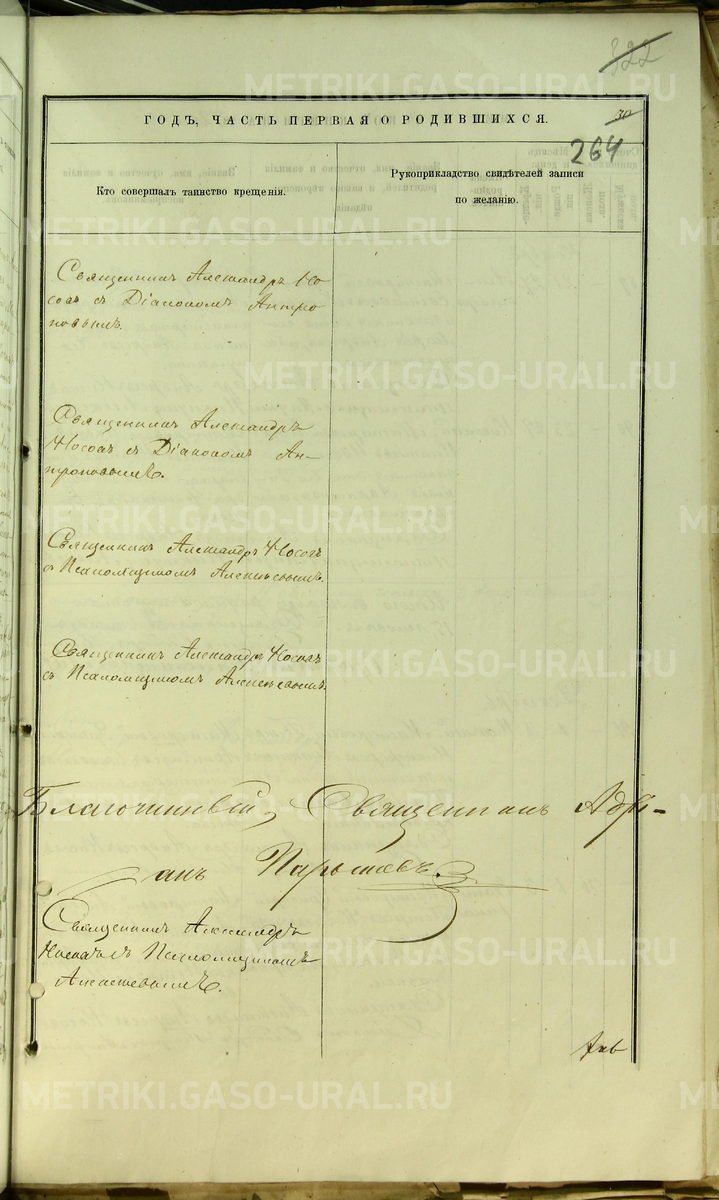 322
30
ГОДЪ, ЧАСТЬ ПЕРВАЯ О РОДИВШИХСЯ.
264
Кто совершалъ таинство крещенія.
Рукоприкладство свидѣтелей записи
по желанію.
Священникъ Александръ Но
совъ съ Діакономъ Антро
повымъ.
Священникъ Александръ
Носовъ съ Діакономъ Ан-
троповымъ.
Священникъ Александръ Носовъ
съ Псаломщикомъ Алексѣевымъ.
Священникъ Александръ Носовъ
съ Псаломщикомъ Алексѣевымъ.
Благочинный, Священникъ Адрі-
анъ
Священникъ Александръ
Носовъ съ Псаломщикомъ
Алексѣевымъ.
METRIKI.GASO-URAL.RU